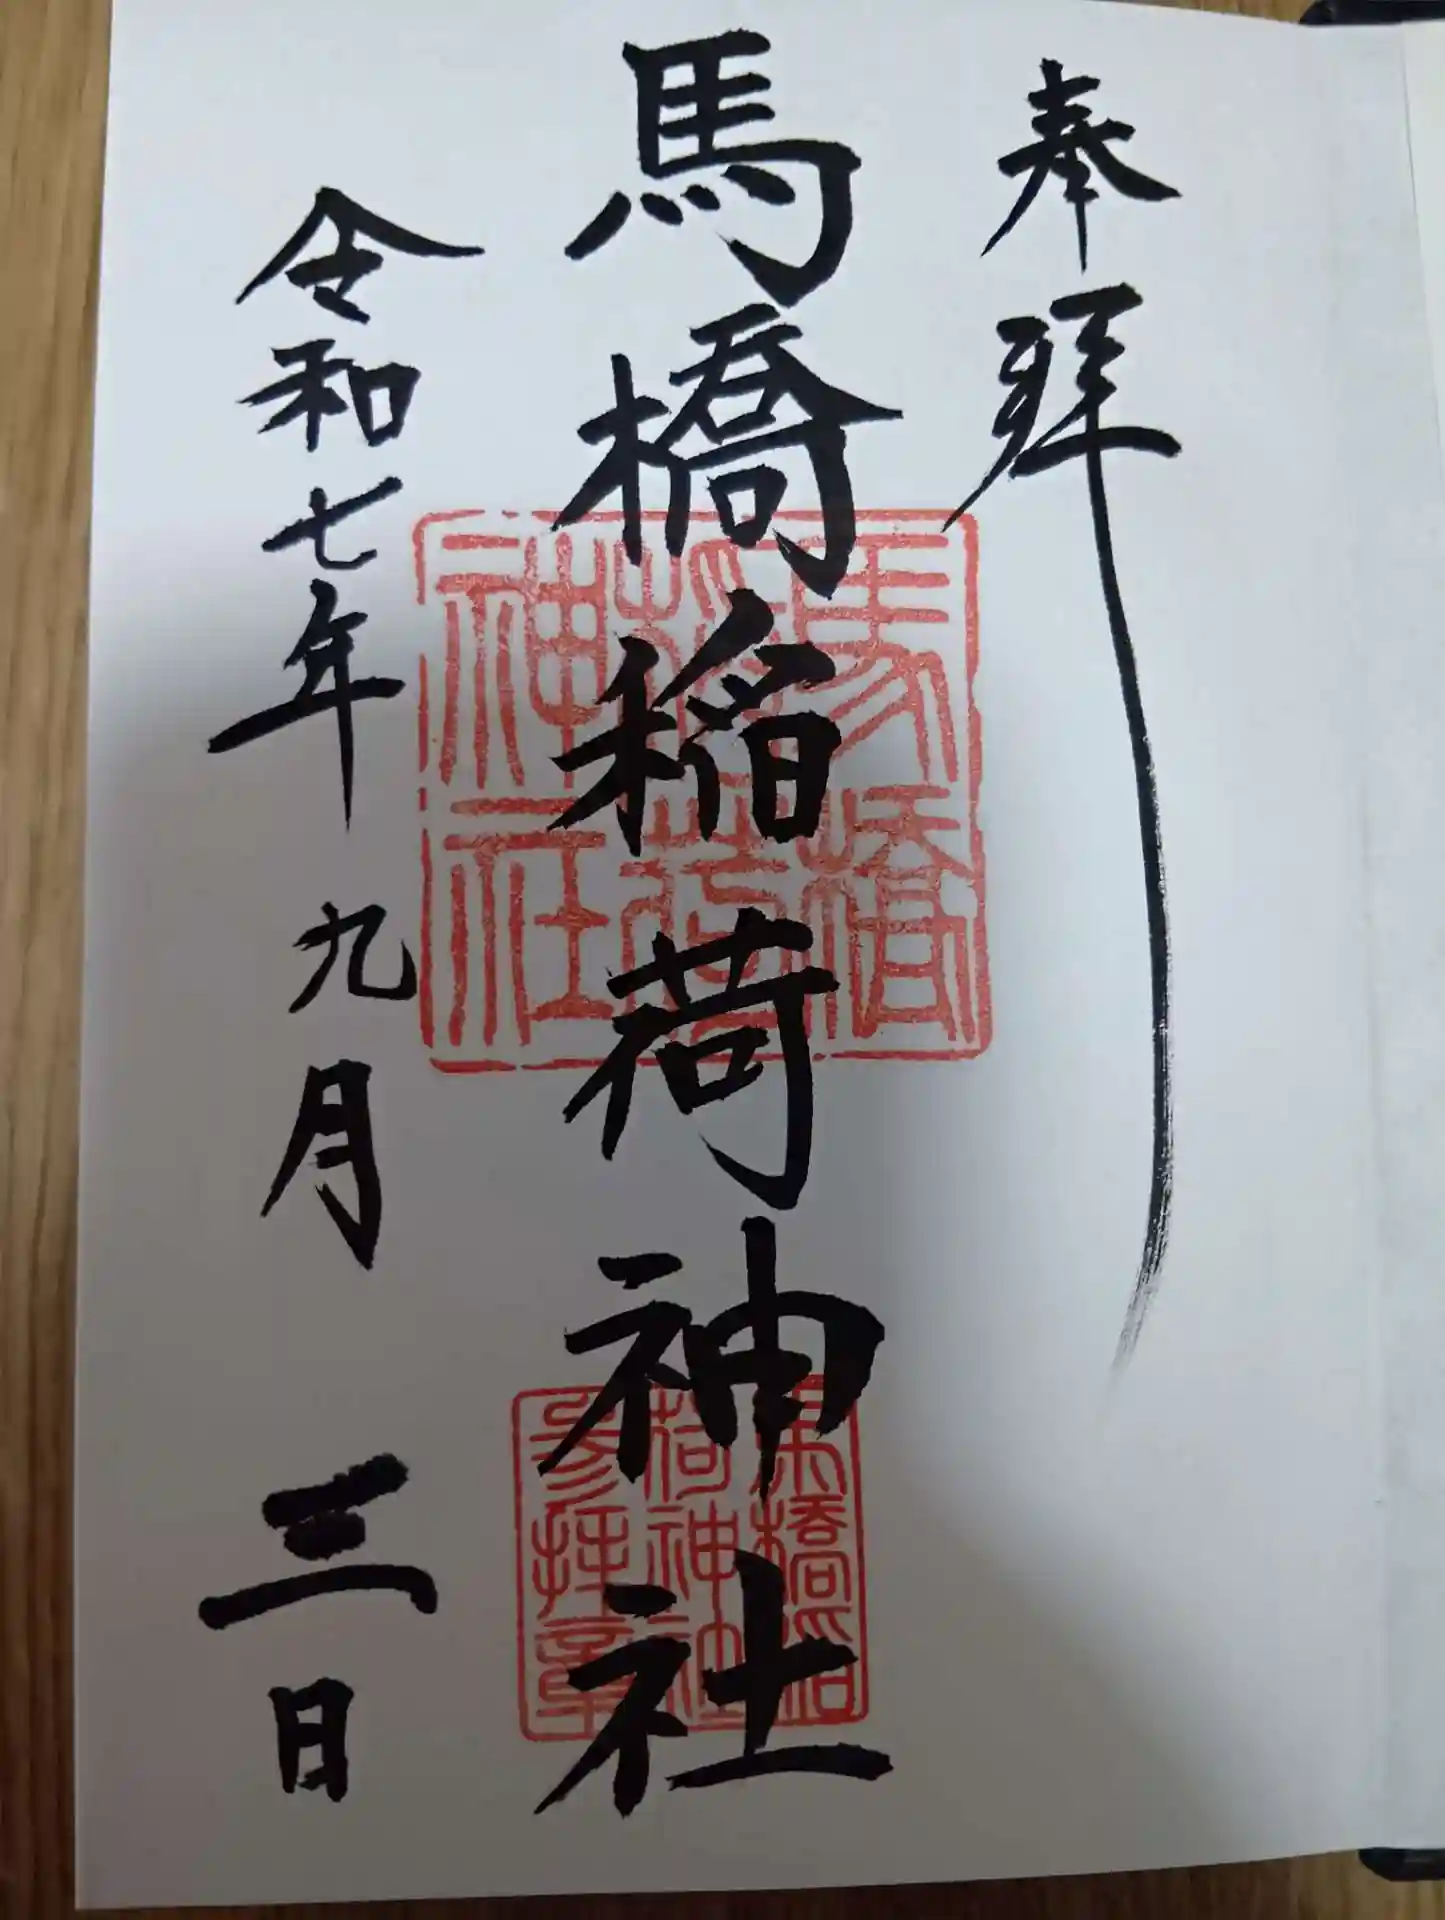 奉拜
馬橋稲荷神社
令和七年 九月 三日
馬橋
稲荷
神社
馬橋稲
荷神社
参拝章